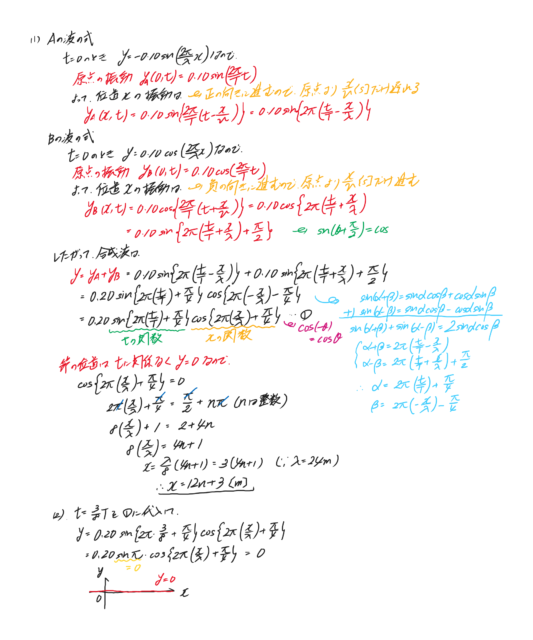 (1) Aの波の式
t=0のとき y=-0.10sin(2π/λ x)なので
原点の振動 yA(0,t)=0.10sin(2π/T t)
よって、位置xの振動は →正の向きに進むので、原点より x/v [s]だけ遅れる
yA(x,t)=0.10sin{2π/T(t-x/v)}=0.10sin{2π(t/T-x/λ)}
Bの波の式
t=0のとき y=0.10cos(2π/λ x)なので
原点の振動 yB(0,t)=0.10cos(2π/T t)
よって、位置xの振動は →負の向きに進むので、原点より x/v [s]だけ進む
yB(x,t)=0.10cos{2π/T(t+x/v)}=0.10cos{2π(t/T+x/λ)}
=0.10sin{2π(t/T+x/λ)+π/2} ← sin(θ+π/2)=cosθ
したがって、合成波は
y=yA+yB=0.10sin{2π(t/T-x/λ)}+0.10sin{2π(t/T+x/λ)+π/2}
=0.20sin{2π(t/T)+π/4}cos{2π(-x/λ)-π/4}
=0.20sin{2π(t/T)+π/4}cos{2π(x/λ)+π/4} …①
tの関数 xの関数
cos(-θ)
=cosθ
sin(α+β)=sinαcosβ+cosαsinβ
+) sin(α-β)=sinαcosβ-cosαsinβ
sin(α+β)+sin(α-β)=2sinαcosβ
{α+β=2π(t/T-x/λ)
α-β=2π(t/T+x/λ)+π/2
∴ α=2π(t/T)+π/4
β=2π(-x/λ)-π/4
節の位置は tに関係なく y=0なので
cos{2π(x/λ)+π/4}=0
2π(x/λ)+π/4=π/2+nπ (nは整数)
8(x/λ)+1=2+4n
8(x/λ)=4n+1
x=λ/8(4n+1)=3(4n+1) (∵λ=24m)
∴x=12n+3 [m]
(2) t=3/8Tを①に代入して
y=0.20sin{2π・3/8+π/4}cos{2π(x/λ)+π/4}
=0.20sinπ・cos{2π(x/λ)+π/4}=0
=0
y
y=0
0
x